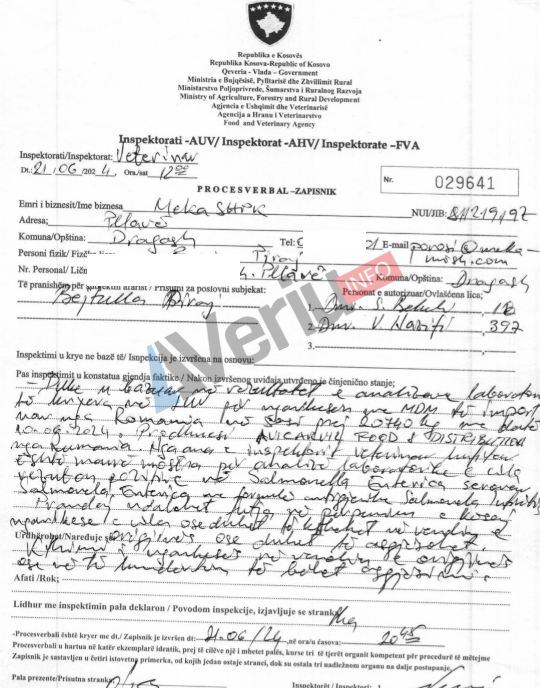 Republika e Kosovës
Republika Kosova-Republic of Kosovo
Qeveria - Vlada – Government
Ministria e Bujqësisë, Pylltarisë dhe Zhvillimit Rural
Ministarstvo Poljoprivrede, Šumarstva i Ruralnog Razvoja
Ministry of Agriculture, Forestry and Rural Development
Agjencia e Ushqimit dhe Veterinarisë
Agencija a Hranu i Veterinarstvo
Food and Veterinary Agency
Inspektorati -AUV/ Inspektorat -AHV/ Inspektorate -FVA
Inspektorati/Inspektorat: Veterinar
Dt.: 21.06/2024, Ora./sat 12:00
PROCESVERBAL –ZAPISNIK
Nr. 029641
Emri i biznesit/Ime biznesa Meka SHPK NUI/JIB: 811219197
Adresa; Pllavë
Komuna/Opština: Dragash Tel: E-mail porosi@meka-mish.com
Personi fizik/ Fizič
Nr. Personal/ Ličn Pllavë Komuna/Opština: Dragash
Të pranishëm për subjektin afarist/ Prisutni za poslovni subjekat: Personat e autorizuar/Ovlašćena lica;
Bejtulla 1. Dmv. S.
2. Dmv. V. Nazifi 397
3.
4Veriu INFO
Inspektimi u krye ne bazë të/ Inspekcija je izvršena na osnovu:
Pas inspektimit u konstatua gjendja faktike / Nakon izvršenog uviđaja utvrđeno je činjenično stanje;
Duke u bazuar në rezultatet e analizave laboratorike
të për ngarkesen me MDM të importuar
nga Romania në sasi prej 20740 kg me datë
10.06.2024. Prodhuesi AVICARVIL FOOD & DISTRIBUTION
nga Rumania. Nga ana e inspektorit veterinar kufitar
është marrë mostra për analiza laboratorike e cila
rezulton pozitive në Salmonella Enterica serovar
Salmonella Enterica me formulë antigjenike Salmonela
Prandaj ndalohet futja në përdorim e kësaj
ngarkese e cila ose duhet të kthehet në vendin e
Urdhërohet/Naređuje se origjinës ose duhet të asgjësohet.
Kthimi i ngarkesës në vendin e origjinës
ose në të kundërtën të bëhet asgjësimi.
Afati /Rok;
Lidhur me inspektimin pala deklaron / Povodom inspekcije, izjavljuje se stranka
-Procesverbali është kryer me dt./ Zapisnik je izvršen dt: 21.06/24, në ora/u časova: 20:45
Procesverbali u hartua në katër ekzemplarë identik, prej të cilëve një i mbetet palës, kurse tri të tjerët organit kompetent për procedurë të mëtejme
Zapisnik je sastavljen u četiri istovetna primerka, od kojih jedan ostaje stranci, dok su ostala tri nadležnom organu na dalje postupanje.
Pala prezente/Prisutna stranka: Inspektorët / Inspektori: 1.